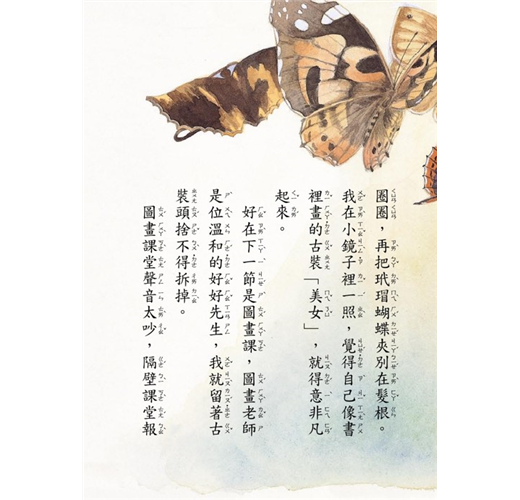 圈圈，再把玳瑁蝴蝶夾別在髮根。
我在小鏡子裡一照，覺得自己像書
裡畫的古裝「美女」，就得意非凡
起來。
好在下一節是圖畫課，圖畫老師
是位溫和的好好先生，我就留著古
裝頭捨不得拆掉。
圖畫課堂聲音太吵，隔壁課堂報